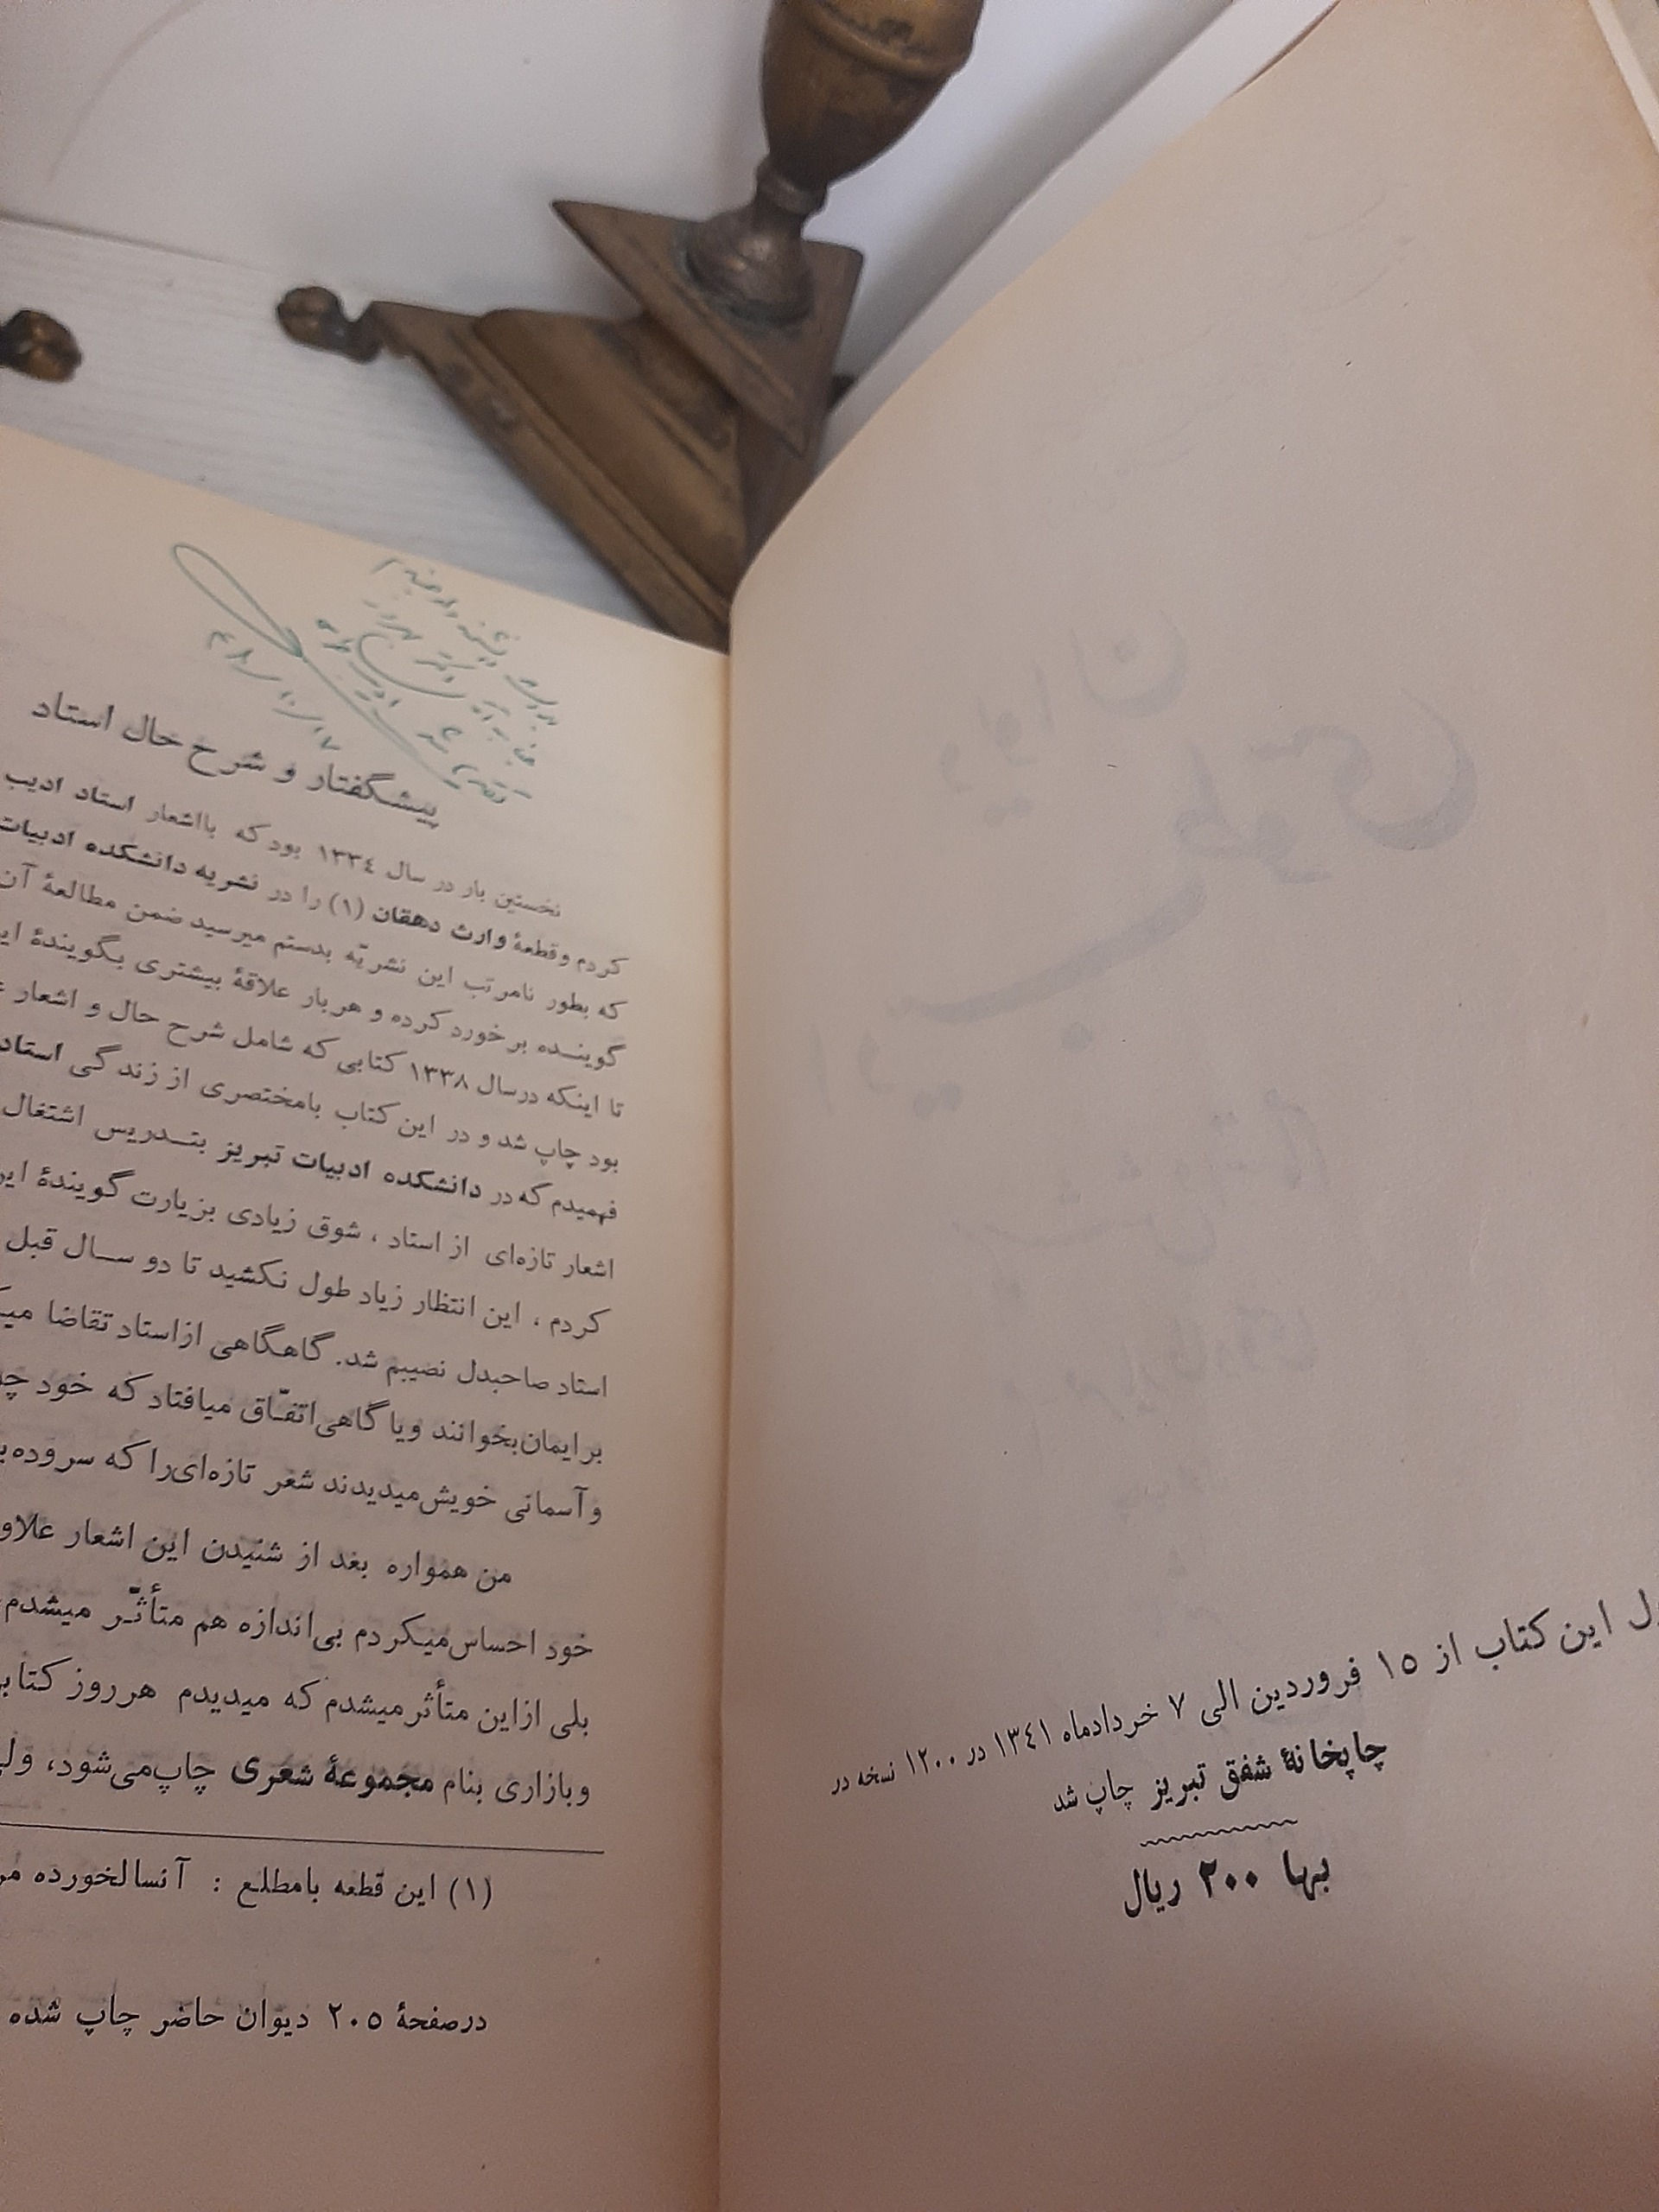 ل این کتاب از ۱۵ فروردین الی ۷ خردادماه ۱۳۴۱ در ۱۲۰۰ نسخه در
چاپخانهٔ شفق تبریز چاپ شد
بها ۲۰۰ ریال
پیشگفتار و شرح حال استاد
نخستین بار در سال ۱۳۳٤ بود که بااشعار استاد ادیب
کردم وقطعهٔ وارث دهقان (۱) را در نشریه دانشکده ادبیات
که بطور نامرتب این نشریّه بدستم میرسید ضمن مطالعهٔ آن
گوینده برخورد کرده و هربار علاقهٔ بیشتری بگویندهٔ این
تا اینکه درسال ۱۳۳۸ کتابی که شامل شرح حال و اشعار
بود چاپ شد و در این کتاب بامختصری از زندگی استاد
فهمیدم که در دانشکده ادبیات تبریز بتدریس اشتغال
اشعار تازه‌ای از استاد ، شوق زیادی بزیارت گویندهٔ این
کردم ، این انتظار زیاد طول نکشید تا دو سال قبل
استاد صاحبدل نصیبم شد. گاهگاهی ازاستاد تقاضا
برایمان‌بخوانند ویا گاهی‌اتفّاق میافتاد که خود
وآسمانی خویش‌میدیدند شعر تازه‌ای‌را که سروده
من همواره بعد از شنیدن این اشعار
خود احساس‌میکردم بی‌اندازه هم متأثّر میشدم
بلی ازاین متأثر میشدم که میدیدم هرروز
وبازاری بنام مجموعهٔ شعری چاپ‌می‌شود،
(۱) این قطعه بامطلع : آنسالخورده
درصفحهٔ ۲۰۵ دیوان حاضر چاپ شده